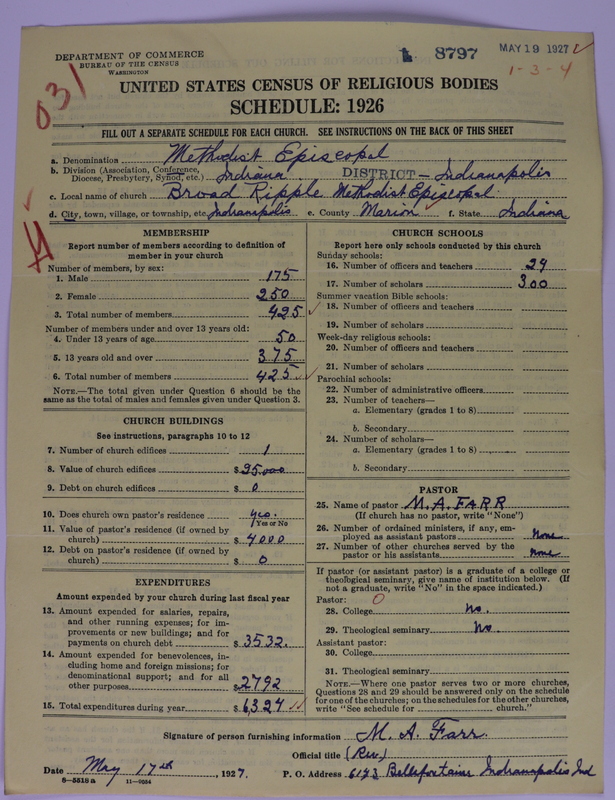 DEPARTMENT OF COMMERCE
BUREAU OF THE CENSUS
WASHINGTON
8797
MAY 19 1927
1-3-4
031
UNITED STATES CENSUS OF RELIGIOUS BODIES
SCHEDULE: 1926
FILL OUT A SEPARATE SCHEDULE FOR EACH CHURCH. SEE INSTRUCTIONS ON THE BACK OF THIS SHEET
a. Denomination Methodist Episcopal
b. Division (Association, Conference, Diocese, Presbytery, Synod, etc.) Indiana DISTRICT – Indianapolis
c. Local name of church Broad Ripple Methodist Episcopal
d. City, town, village, or township, etc. Indianapolis e. County Marion f. State Indiana
MEMBERSHIP
Report number of members according to definition of
member in your church
Number of members, by sex:
1. Male 175
2. Female 250
3. Total number of members 425
Number of members under and over 13 years old:
4. Under 13 years of age 50
5. 13 years old and over 375
6. Total number of members 425
NOTE.—The total given under Question 6 should be
same as the total of males and females given under Question 3.
CHURCH BUILDINGS
See instructions, paragraphs 10 to 12
7. Number of church edifices 1
8. Value of church edifices $ 95,000
9. Debt on church edifices $ 0
10. Does church own pastor's residence yes.
(Yes or No)
11. Value of pastor's residence (if owned by
church) $ 4000
12. Debt on pastor's residence (if owned by
church) $ 0
EXPENDITURES
Amount expended by your church during last fiscal year
13. Amount expended for salaries, repairs,
and other running expenses; for im-
provements or new buildings; and for
payments on church debt $ 3532.
14. Amount expended for benevolences, in-
cluding home and foreign missions; for
denominational support; and for all
other purposes $ 2792
15. Total expenditures during year $ 6324
CHURCH SCHOOLS
Report here only schools conducted by this church
Sunday schools:
16. Number of officers and teachers 29
17. Number of scholars 300
Summer vacation Bible schools:
18. Number of officers and teachers
19. Number of scholars
Week-day religious schools:
20. Number of officers and teachers
21. Number of scholars
Parochial schools:
22. Number of administrative officers
23. Number of teachers—
a. Elementary (grades 1 to 8)
b. Secondary
24. Number of scholars—
a. Elementary (grades 1 to 8)
b. Secondary
PASTOR
25. Name of pastor M. A. FARR
(If church has no pastor, write "None")
26. Number of ordained ministers, if any, em-
ployed as assistant pastors None
27. Number of other churches served by the
pastor or his assistants none
If pastor (or assistant pastor) is a graduate of a college or
theological seminary, give name of institution below. (If
not a graduate, write "No" in the space indicated.)
Pastor: 0
28. College No.
29. Theological seminary No.
Assistant pastor:
30. College
31. Theological seminary
NOTE.—Where one pastor serves two or more churches,
Questions 28 and 29 should be answered only on the schedule
for one of the churches; on the schedules for the other churches,
write "See schedule for church."
Signature of person furnishing information M. A. Farr.
Official title (Rev.)
Date May 17th, 1927. P. O. Address 6173 Bellefontaine Indianapolis Ind
8—5518a 11—9554